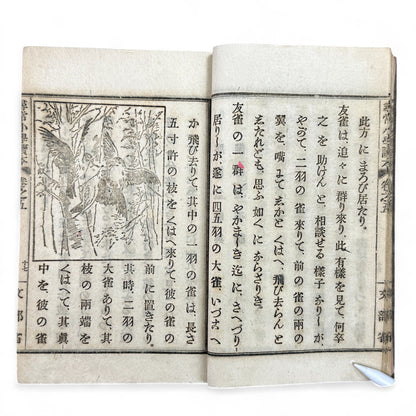 此方にまろび居たり。
友雀は追々に群り來り、此有樣を見て、何卒
之を助けんと、相談せる樣子かりーが、
やがて、二羽の雀來りて、前後より、其兩
翼を、嘴にてゑかとくはへ、飛び去らんと
ゑたれども、思ふ如くにならざりき。
友雀の一群は、やかまーき迄に、さへづり
居りーが、遂に四五羽の大雀、いづまへ
か飛び去りて、其中の一羽の雀は、長さ
五寸許の枝をくはへ來りて、彼の雀の
前に置きたり。
其時、二羽の
大雀ありて、其
枝の兩端を
くはへて、其眞
中を、彼の雀
尋常小學讀本 卷之五
十七
文部省